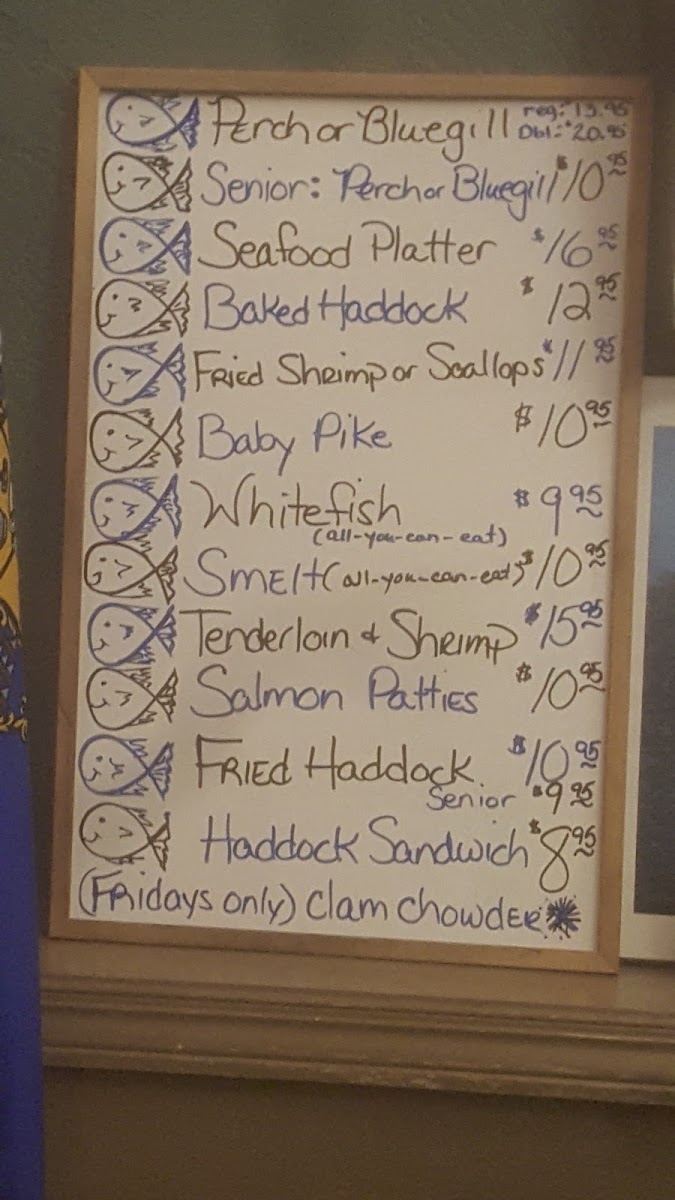 Perch or Bluegill reg: 13.95
Dbl: $20.95
Senior: Perch or Bluegill $10 95
Seafood Platter $16 95
Baked Haddock $12 95
Fried Shrimp or Scallops $11 95
Baby Pike $10 95
Whitefish $9 95
(all-you-can-eat)
Smelt (all-you-can-eat) $10 95
Tenderloin & Shrimp $15 95
Salmon Patties $10 95
Fried Haddock $10 95
Senior $9 95
Haddock Sandwich $8 95
(Fridays only) Clam Chowder